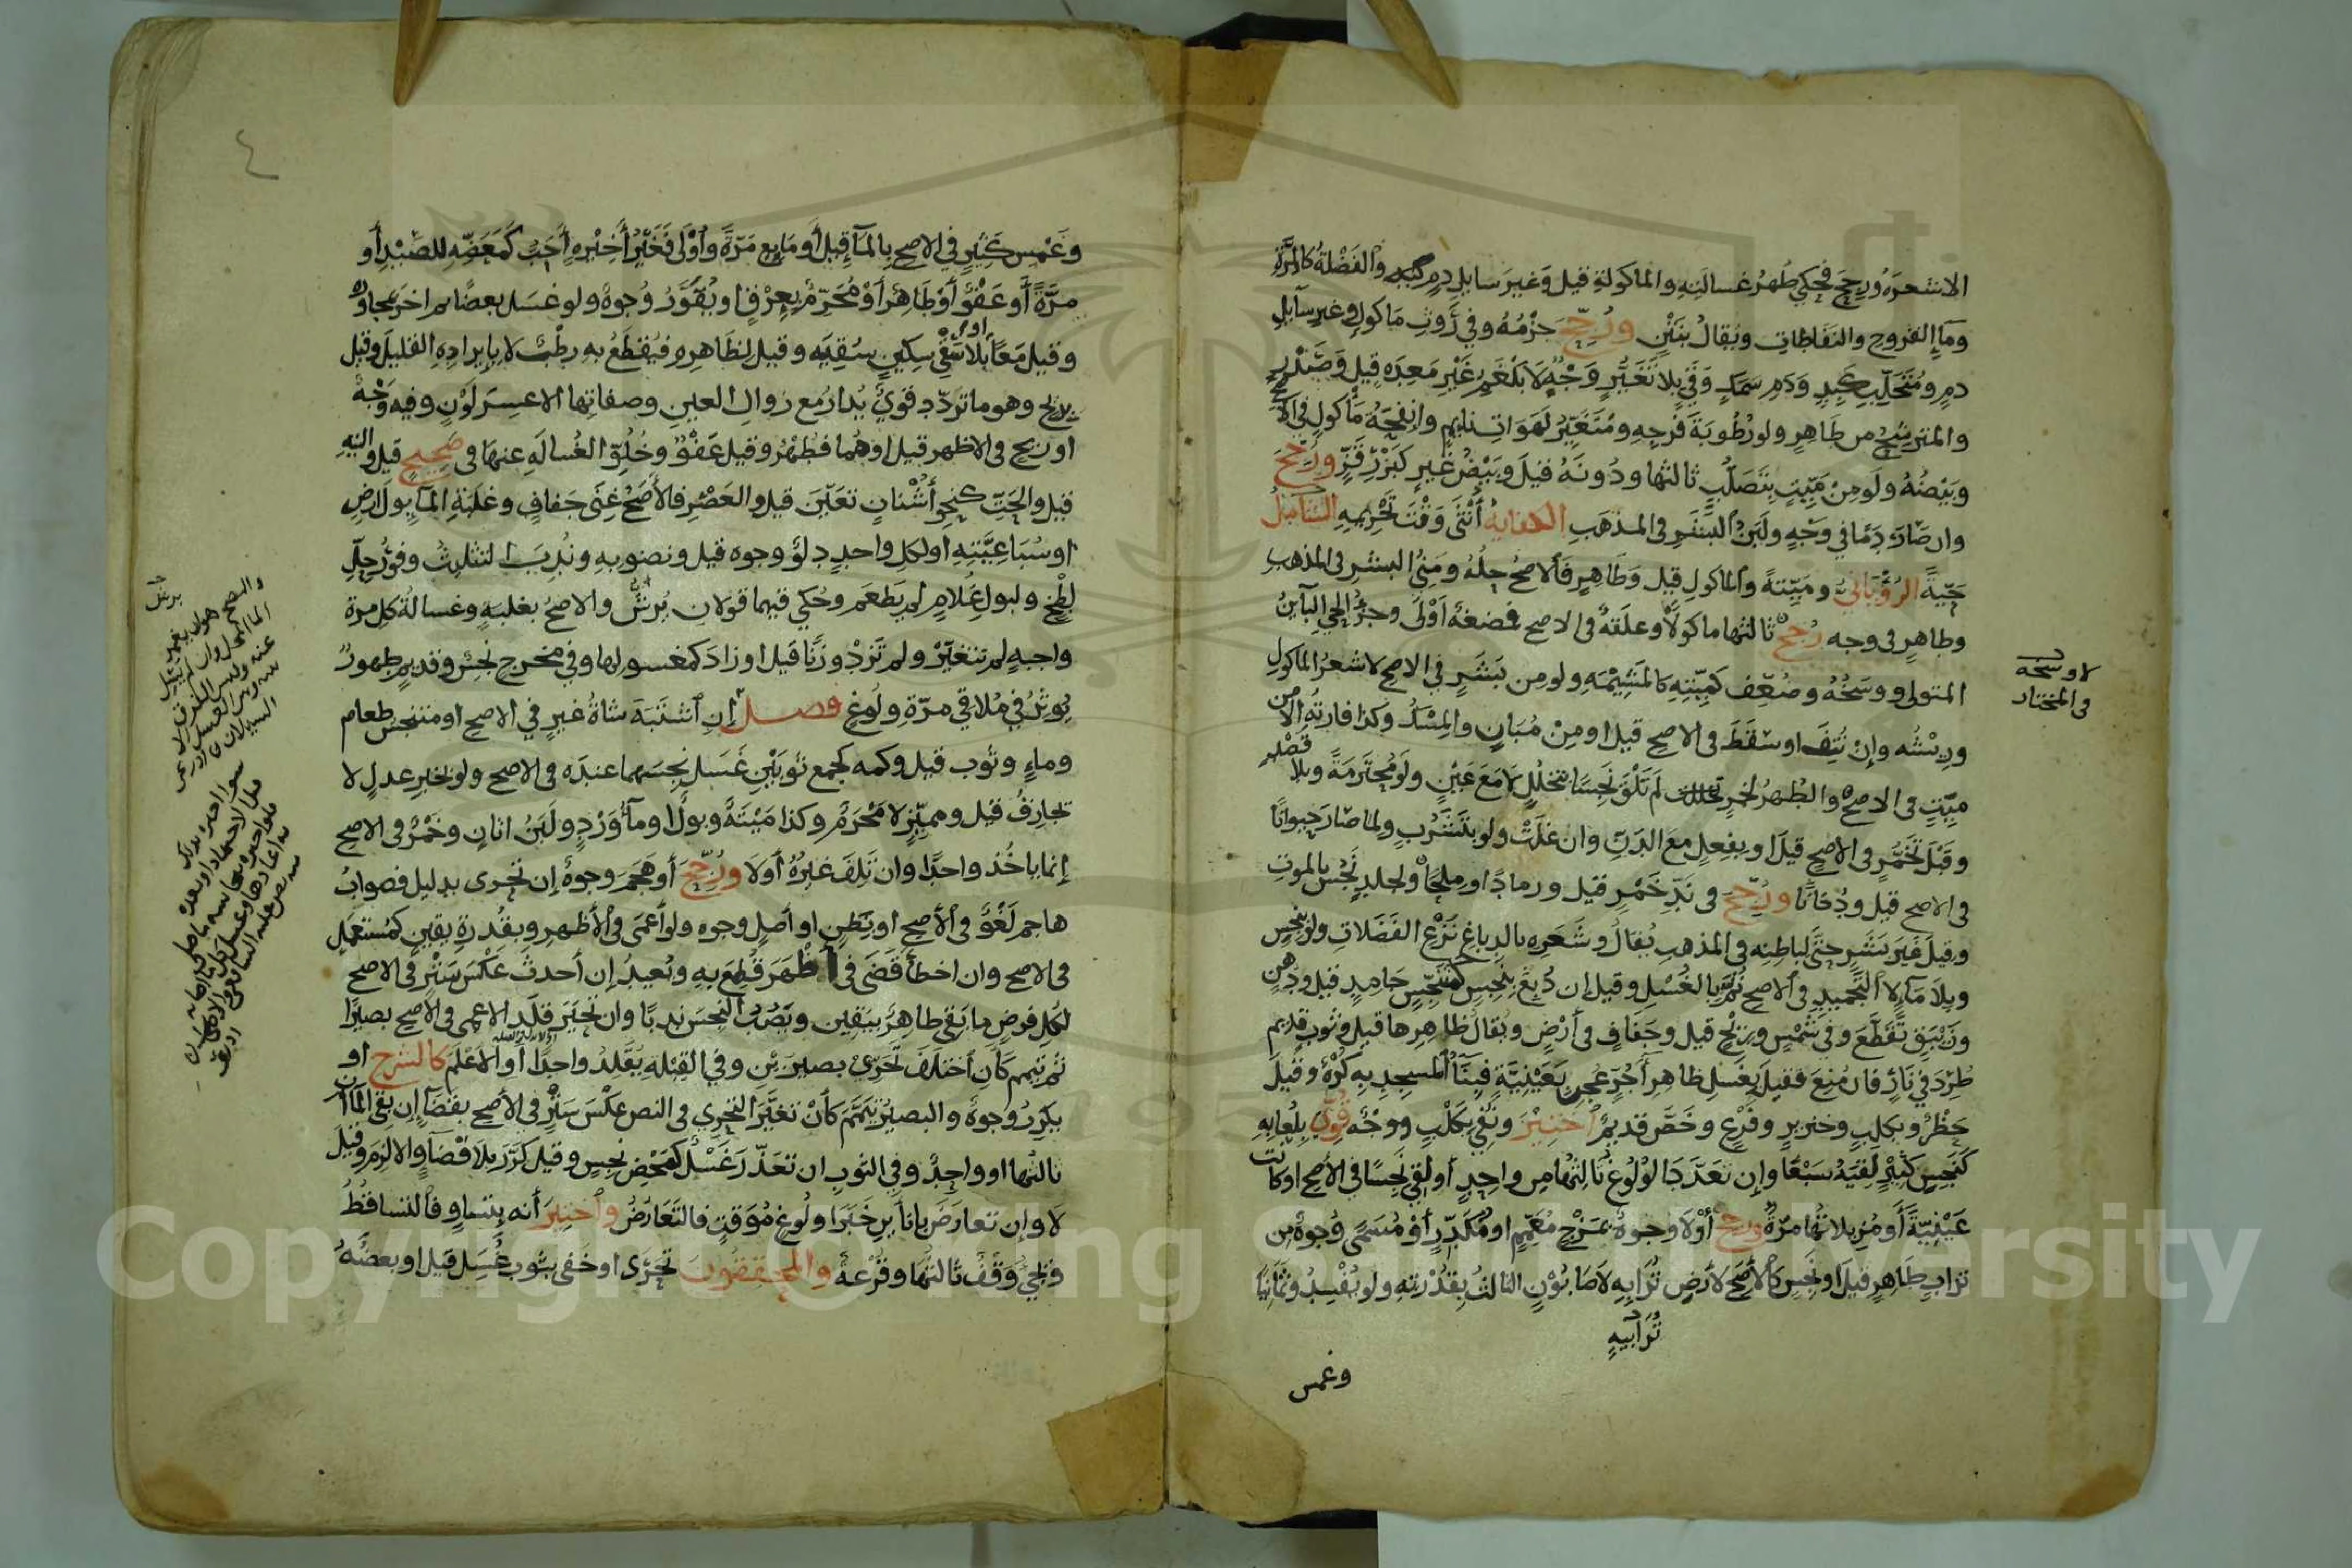 الاشعره ورجح فحكي طهر غسالته والماكولة قيل وغير سايل دم كبه والفضلة كالمرة
وماء القروح والنفاطات ويقال بنتن ورجح جزمه وفي روث ماكول وغير سآيل
دم ومتحلب كبد ودم سمك وقي بلا تغير وجه لا بلغم غير معده قيل وصدر
والمترشح من طاهر ولو رطوبة فرجه ومتغير لهوات نايم وانفحة ماكول في الاصح
وبيضه ولو من ميت بتصلب ثالثها ودونه قيل وبيض غير كبزر قز ورجح
وان صارت دما في وجه ولبن البشر في المذهب الكفاية أنثى وقت تحريمه الشامل
حية الروياني وميتة والماكول قيل وطاهر فالاصح حله ومني البشر في المذهب
وطاهر في وجه رجح ثالثها ماكولا وعلقة في الاصح فمضغة أولى وجزء الحي البآين
المتولي ووسخه وضعف كميتته كالمشيمه ولو من بشر في الاصح لا شعر الماكول
وريشه وإن نتف او سقط في الاصح قيل او من مبان والمسك وكذا فارته الا من
ميت في الاصح والطهر لخمر تخللت لم تلق نجسا بتخلل لا مع عين ولو محترمة وبلا قصد
وقبل تخمر في الاصح قيل او بفعل مع الدن وان غلت ولو بتشرب ولما صار حيوانا
في الاصح قيل ودخانا ورجح في ند خمر قيل ورمادا او ملحا ولجلد نجس بالموت
وقيل غير بشر حتى لباطنه في المذهب يقال وشعره بالدباغ نزع الفضلات ولو بنجس
وبلا مآء لا التجميد في الاصح ثم بالغسل وقيل ان دبغ بنجس كمتنجس جامد قيل ودهن
وزئبق تقطع وفي شمس وريح قيل وجفاف في أرض ويقال ظاهرها قيل وثوب قديم
طرد في نار فان منع فقيل بغسل ظاهر آجر عجن بعينية فبنآ المسجد به كره وقيل
حظر وبكلب وخنزير وفرع وخص قديم اختير ونفي بكلب ووجه قوي بلعابه
كنجس كثير لقيه سبعا وإن تعدد جا لولوغ ثالثها من واحد أو لقي نجسا في الاصح او كانت
عينية أو مز بلا تها مرة ورجح أولا وجوه بمزج معمم او مكدر أو مسمى وجوه من
تراب طاهر قيل او نجس كالاصح لارض ترابيه لا صابون الثالث بقدرته ولو يفسد وثمانيا
ترابيه
وغمس
لا وسخه
في المختار
٤
وغمس كثير في الاصح بالمآء قيل أو مايع مرة وأولى فخير أخيره أحب كمعضه للصيد أو
مرة أو عفو أو طاهر أو محرم بعرق او يقور وجوه ولو غسل بعضا ثم اخر بمجاوره
وقيل معا بلا سقي سكين سقيه وقيل لظاهره فيقطع به رطب لا بايراده القليل وقيل
يلاقح وهو ما تردد قوي يدار مع زوال العين وصفاتها الا عسر لون وفيه وجه
او ريح في الاظهر قيل او هما فطهر وقيل عفو وخلق الغسالة عنها في صحيح قيل والنيه
قيل والحت كنحو أشنان تعين قيل والعصر فالأصح غنى جفاف وغلبة المآ بول ارض
او سباعيته او لكل واحد دلو وجوه قيل ونضوبه وندب التثليث وفوق رجل
لطخ ولبول غلام لم يطعم وحكي فيهما قولان يرش والاصح بغلبه وغسالة كل مرة
واجبه لم تتغير ولم تزد وزنا قيل او زاد كمغسولها وفي مخرج نجس وقديم طهور
يوثر في ملاقي مرة ولوغ فصل إن اشتبه شاة غير في الاصح او متنجس طعام
وماء وثوب قيل وكمه كجمع ثوبين غسل نجسهما عنده في الاصح ولو بخبر عدل لا
تجازف قيل ومميز لا محرم وكذا ميتة وبولا ومآء ورد ولبن اتان وخمر في الاصح
إنما ياخذ واحدا وان تلف غيره أولا ورجح أو هجم وجوه إن تحرى بدليل فصواب
هاجم لغو في الأصح او بظن او أصل وجوه ولو أعمى في الأظهر وبقدرة يقين كمستعمل
في الاصح وان اخطأ قضى في أظهر قطع به ويعيد إن أحدث عكس ستر في الاصح
لكل فرض ما بقي طاهر بيقين ويصب النجس ندبا وان تحير قلد الاعمى في الأصح بصيرا
ثم تيمم كان اختلف تحري بصيرين وفي القبله يقلد واحدا أو الاعلم كالشرح او
يكرر وجوه والبصير تيمم كأن تغير التحري في النص عكس ستر في الأصح بقضآء إن بقي المآآن
ثالثها او واحد وفي الثوب ان تعذر غسل كمحض نجس وقيل كرر بلا قضآء والا لزم وقيل
لا وإن تعارض باناءين خبرا ولوغ موقت فالتعارض واختير أنه بتساو فالتساقط
وقيل وقف ثالثها وقرعة والمحققون تحرى او خفي بثوب غسل قيل او بعضه